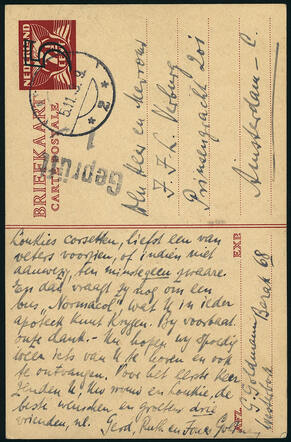 NEDERLAND
5
CENT
BRIEFKAART
CARTE POSTALE
5.11.3.9.
* 2 *
Geprüft
1
den Heer en Mevrouw
J. F. L. Verburg
Prinsengracht 201
Amsterdam-C.
Loukies corsetten, liefst een van
veters voorzien, of indien niet
aanwezig, ten minste geen zware.
En dan vraagt zij nog om een
bus "Normacol" wat U in ieder
apotheek kunt krijgen. Bij voorbaat
onze dank. - Wij hopen, wij spoedig
weer iets van U te horen en ook
te ontvangen. Voor het eerste keer
zenden U, Uw vrouw en Loukie, de
beste wenschen en groeten drie
vrienden, nl. Gerd, Ruth en
EXP.
G. Goldmann Barak 68
Westerbork
AFZ.